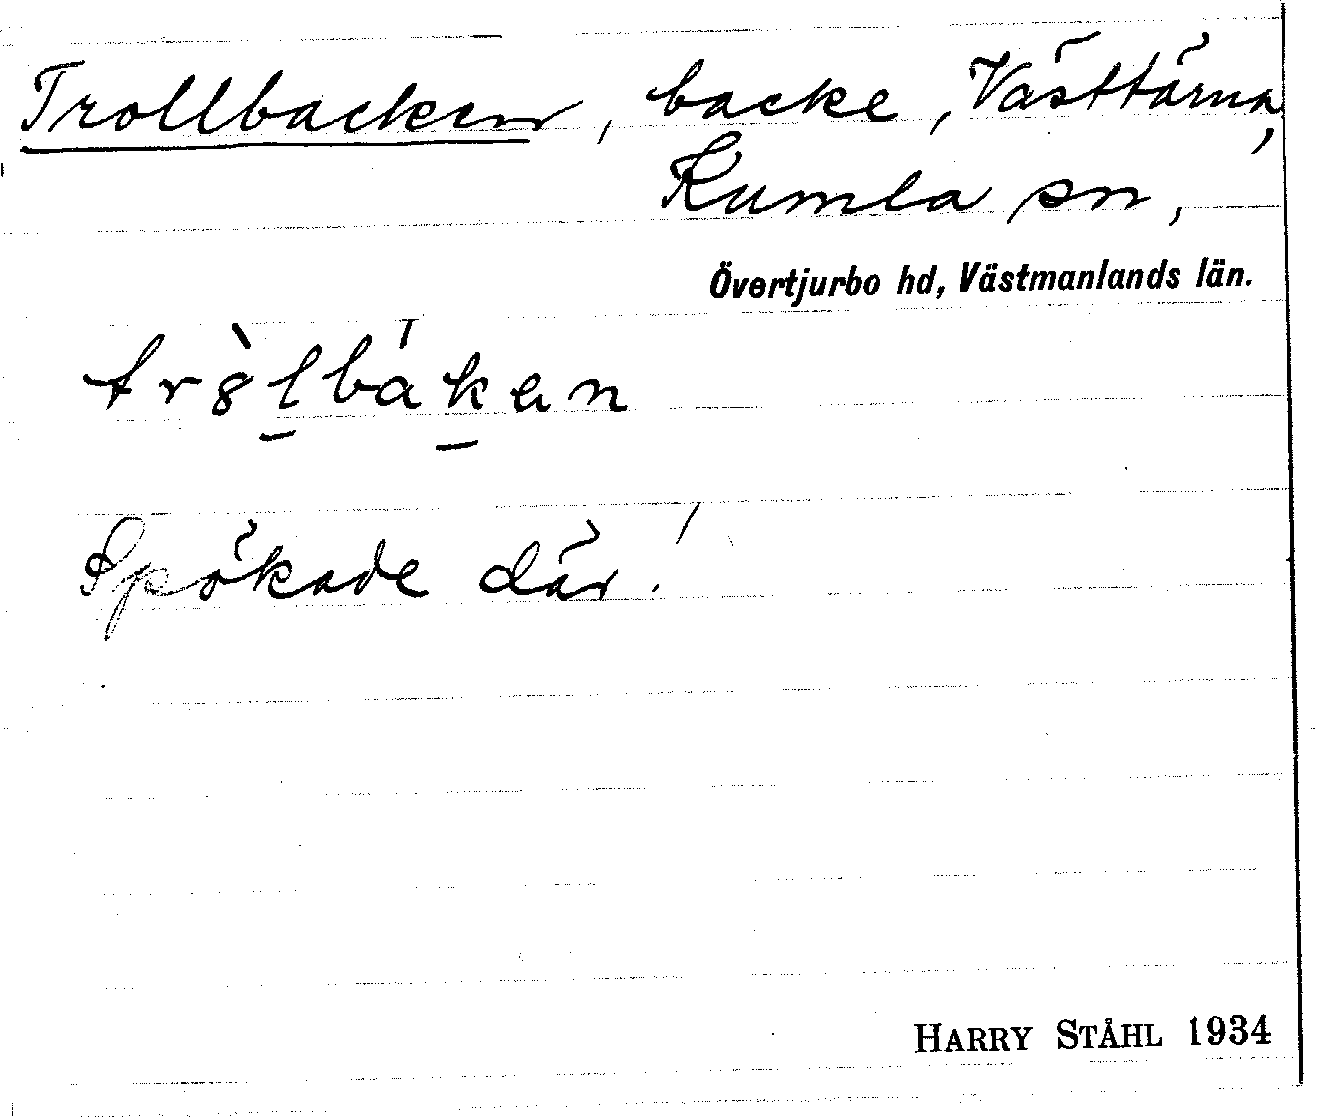 Trollbacken, backe, Västtärna,
Kumla sn,
Övertjurbo hd, Västmanlands län.
trò̱lbakan
Spökade där!
HARRY STÅHL 1934